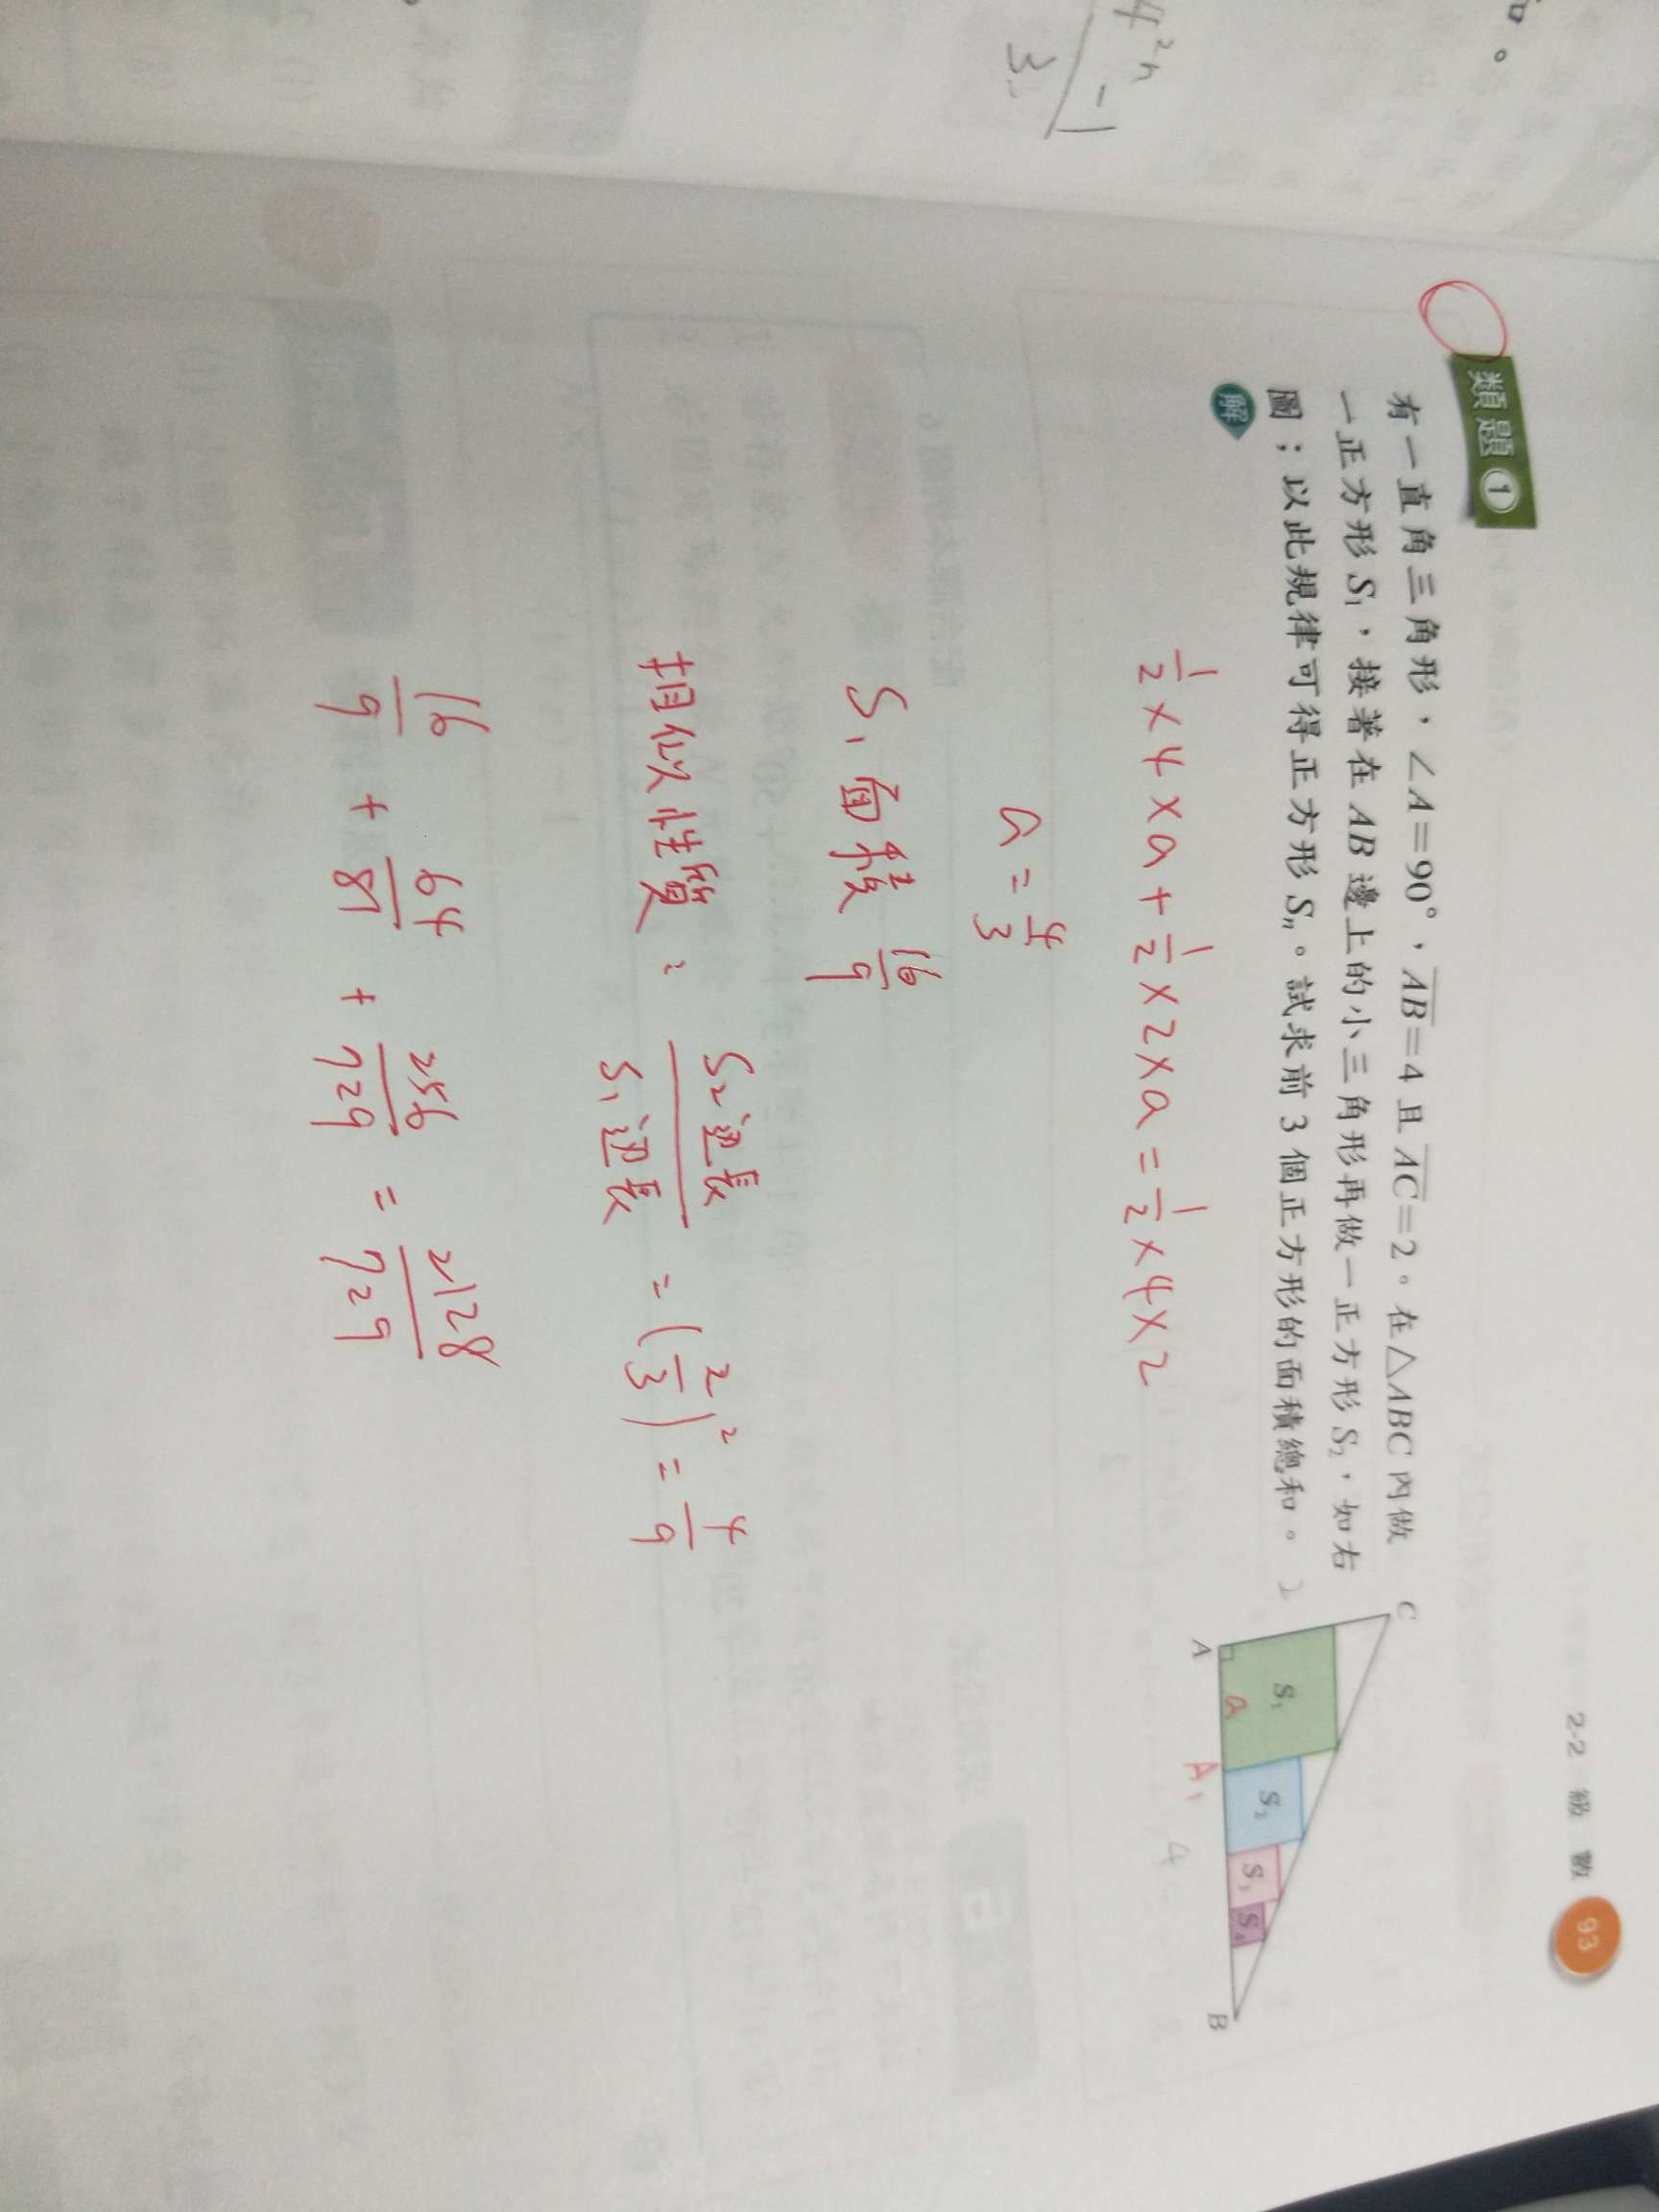 4²ⁿ-1
3
2-2 級 數 93
類題 1
有一直角三角形,∠A=90°,AB=4 且 AC=2。在△ABC 內做
一正方形 S₁,接著在 AB 邊上的小三角形再做一正方形 S₂,如右
圖;以此規律可得正方形 Sₙ。試求前 3 個正方形的面積總和。
解
C
2
S₁
S₂
S₃
S₄
a
A
A₁
4
B
1/2×4×a+1/2×2×a=1/2×4×2
a=4/3
S₁面積 16/9
相似性質: S₂边長/S₁边長 =(2/3)²=4/9
16/9 + 64/81 + 256/729 = 2128/729